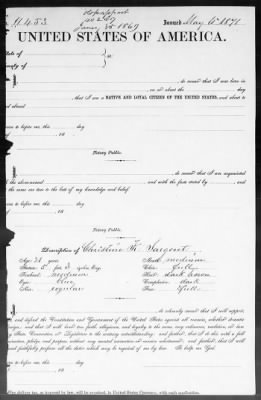 4453
Issued May 6th 1871
UNITED STATES OF AMERICA.
State of
of
, do swear that I was born in
, on or about the day
that I am a NATIVE AND LOYAL CITIZEN OF THE UNITED STATES, and about to
to before me, this day
18
Notary Public.
, do swear that I am acquainted
the above-named , and with the facts stated by and
the same are true to the best of my knowledge and belief.
to before me, this day
18
Notary Public.
Description of Christine K. Sargent
Age: 31 years
Mouth: medium
Stature: 5 feet 3 inches, Eng.
Chin: full
Forehead: medium
Hair: dark brown
Eyes: blue
Complexion: dark
Nose: regular
Face: full
, do solemnly swear that I will support,
and defend the Constitution and Government of the United States against all enemies, whether domestic
foreign; and that I will bear true faith, allegiance, and loyalty to the same, any ordinance, resolution, or law
State, Convention, or Legislature to the contrary notwithstanding; and further, that I do this with a full
, pledge, and purpose, without any mental reservation or evasion whatsoever; and further, that I will
faithfully perform all the duties which may be required of me by law. So help me God.
to before me, this day
18